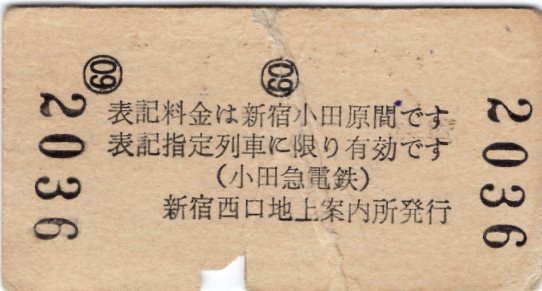 2036
09
09
表記料金は新宿小田原間です
表記指定列車に限り有効です
(小田急電鉄)
新宿西口地上案内所発行
2036